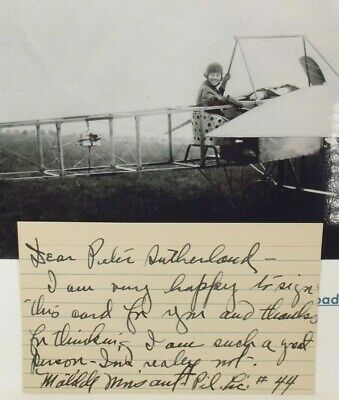 Dear Peter Sutherland –
I am very happy to sign
this card for you and thanks
for thinking I am such a great
person – I'm really not.
Matilde Moisant Pil. Lic # 44
oad